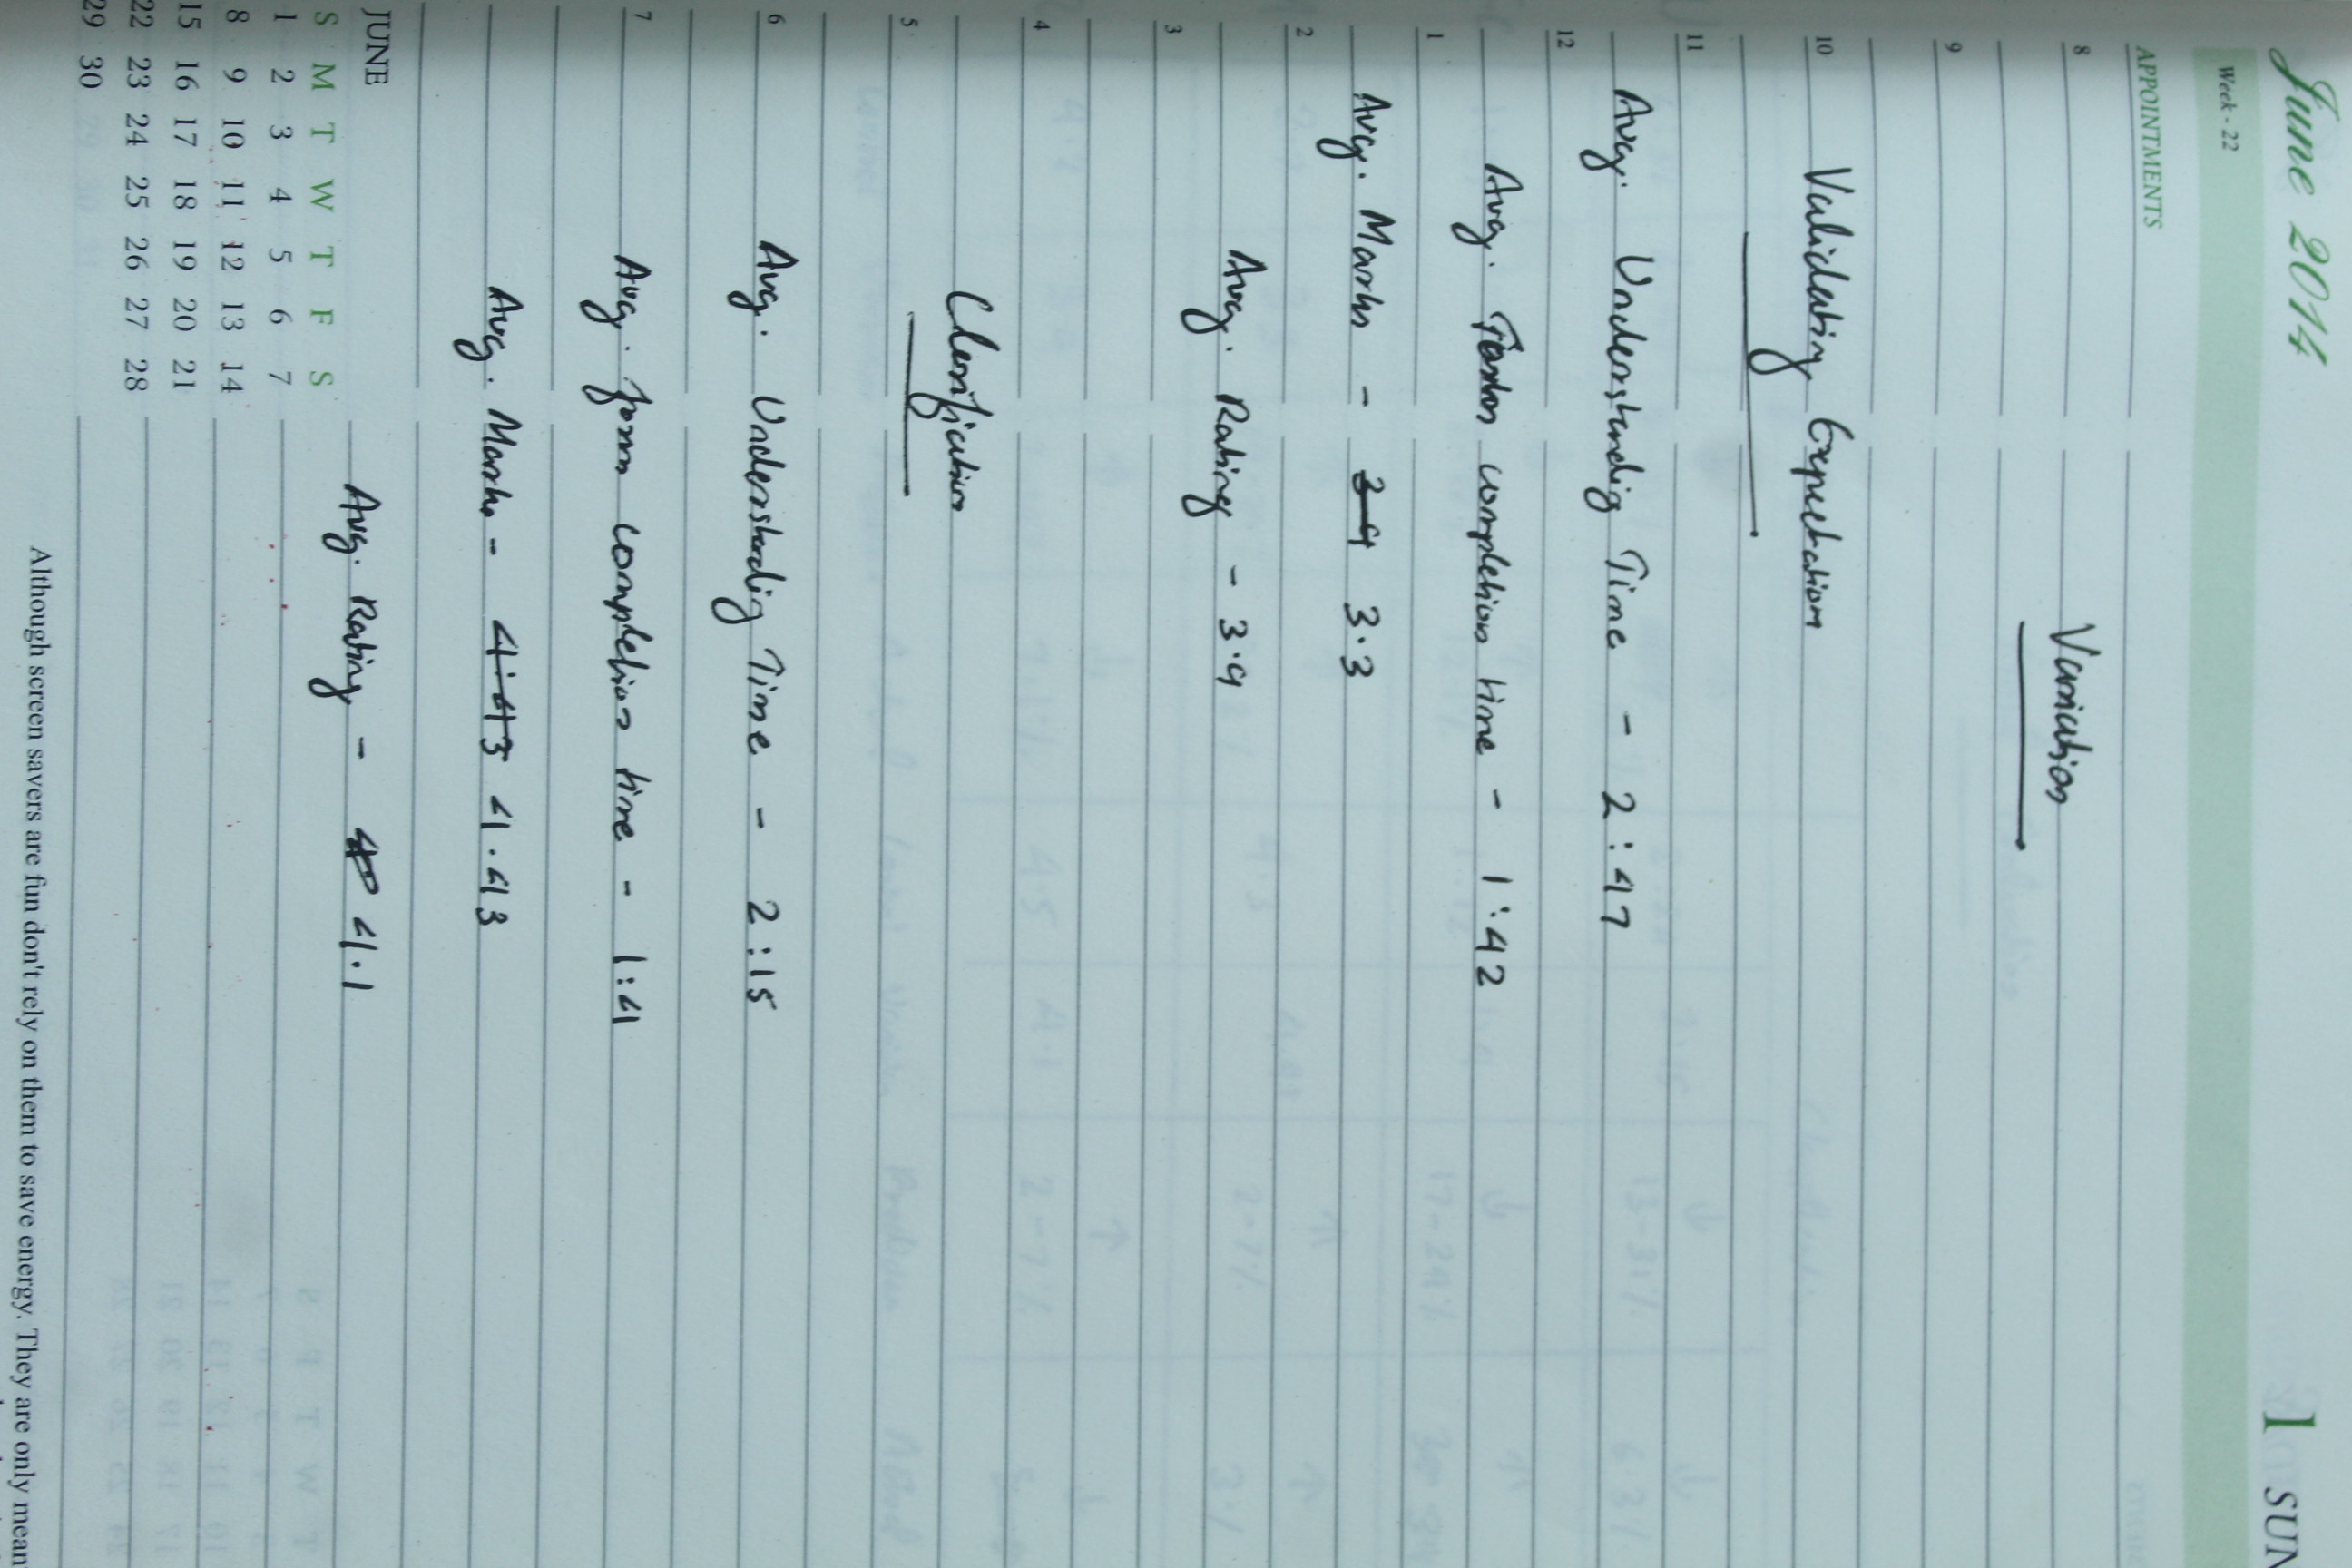 June 2014
1 SUN
Week - 22
APPOINTMENTS
8
Variation
9
10
Validating Expectation
11
Avg. Understandig Time - 2:47
12
Avg. completion time - 1:42
1
Avg. Marks - 3.3
2
Avg. Rating - 3.9
3
4
Clarification
5
6
Avg. Understandig Time - 2:15
7
Avg. form completion time - 1:4
Avg. Marks - 4:43 4.43
JUNE
Avg. Rating - 4.1
S M T W T F S
1 2 3 4 5 6 7
8 9 10 11 12 13 14
15 16 17 18 19 20 21
22 23 24 25 26 27 28
29 30
Although screen savers are fun don't rely on them to save energy. They are only mean